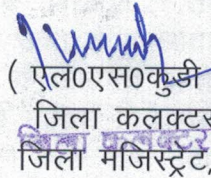 ( एल0एस0कुडी
जिला कलक्टर
जिला कलक्टर
जिला मजिस्ट्रेट,